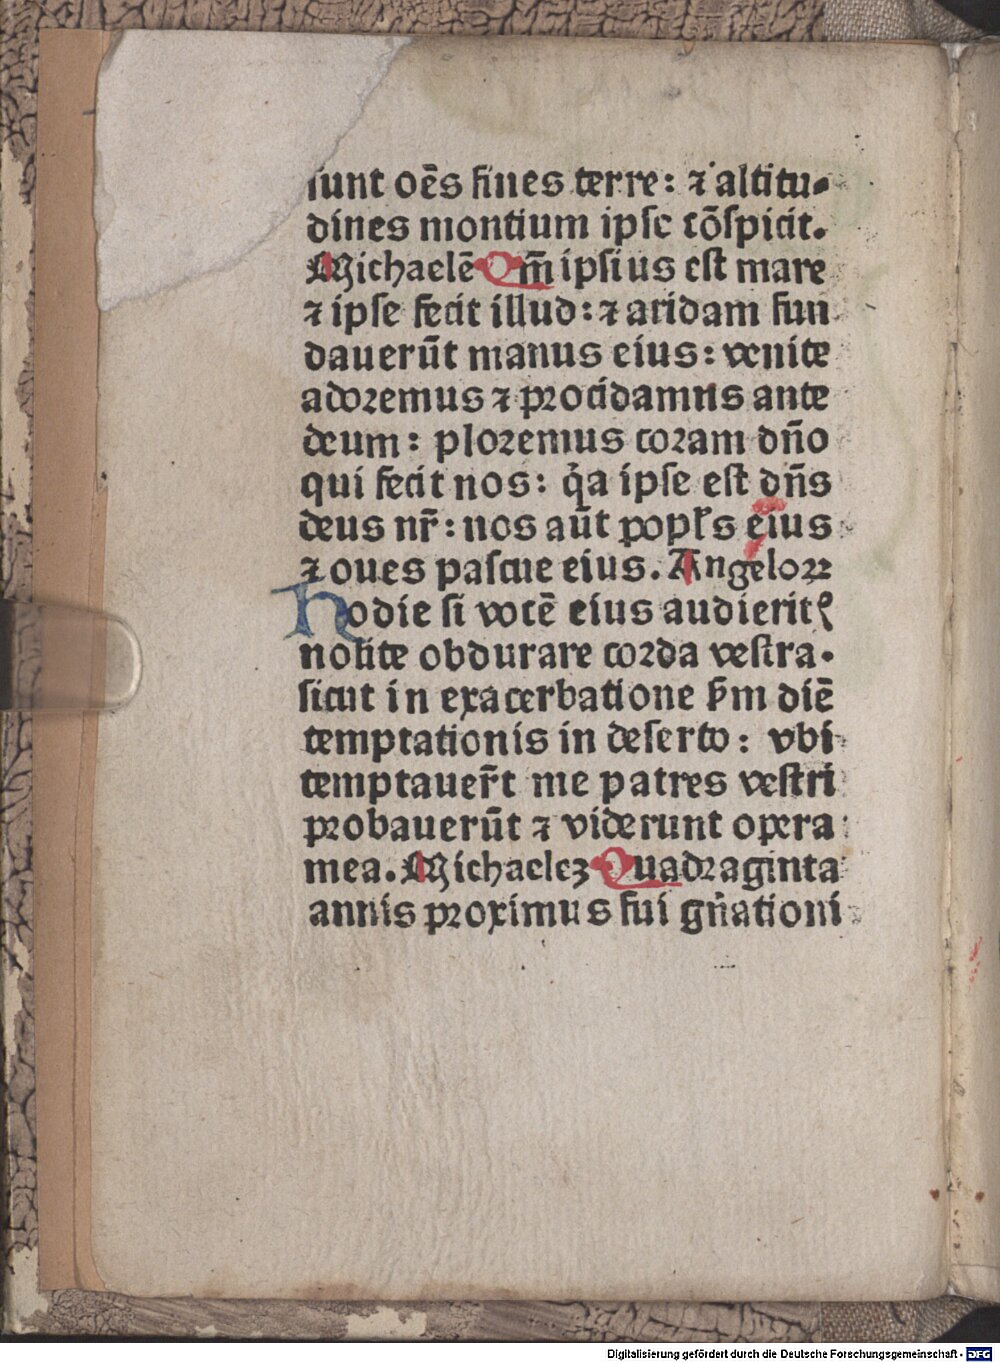 sunt oēs fines terre: ⁊ altitu-
dines montium ipse cōspicit.
Michaelē Qm̄ ipsius est mare
⁊ ipse fecit illud: ⁊ aridam fun
dauerūt manus eius: venite
adoremus ⁊ procidamus ante
deum: ploremus coram dño
qui fecit nos: q̇a ipse est dñs
deus nr̄: nos aūt popl's eius
⁊ oues pascue eius. Angeloꝝ
Hodie si vocē eius audieritꝭ
nolite obdurare corda vestra.
sicut in exacerbatione ẜm diē
temptationis in deserto: vbi
temptauer̄t me patres vestri
probauerūt ⁊ viderunt opera
mea. Michaelez Quadraginta
annis proximus fui gn̄ationi
Digitalisierung gefördert durch die Deutsche Forschungsgemeinschaft - DFG